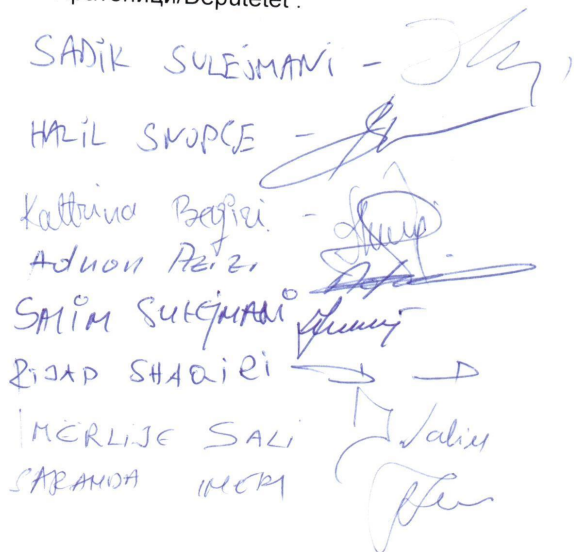 /Deputetët :
SADIK SULEJMANI -
HALIL SNOPÇE -
Kaltrina Beqiri -
Adnon Azizi
SALIM SULEJMANI
RIJAD SHAQIRI -
MERLIJE SALI
SARANDA IMERI